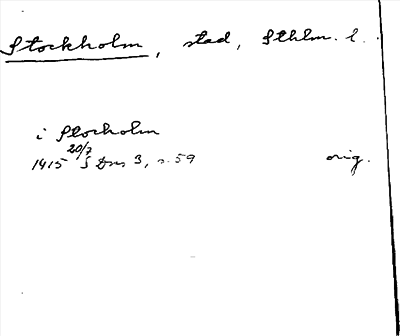 Stockholm, stad, Sthlm. l.
i Stocholm
1415 20/7 S Dns 3, s. 59 orig.